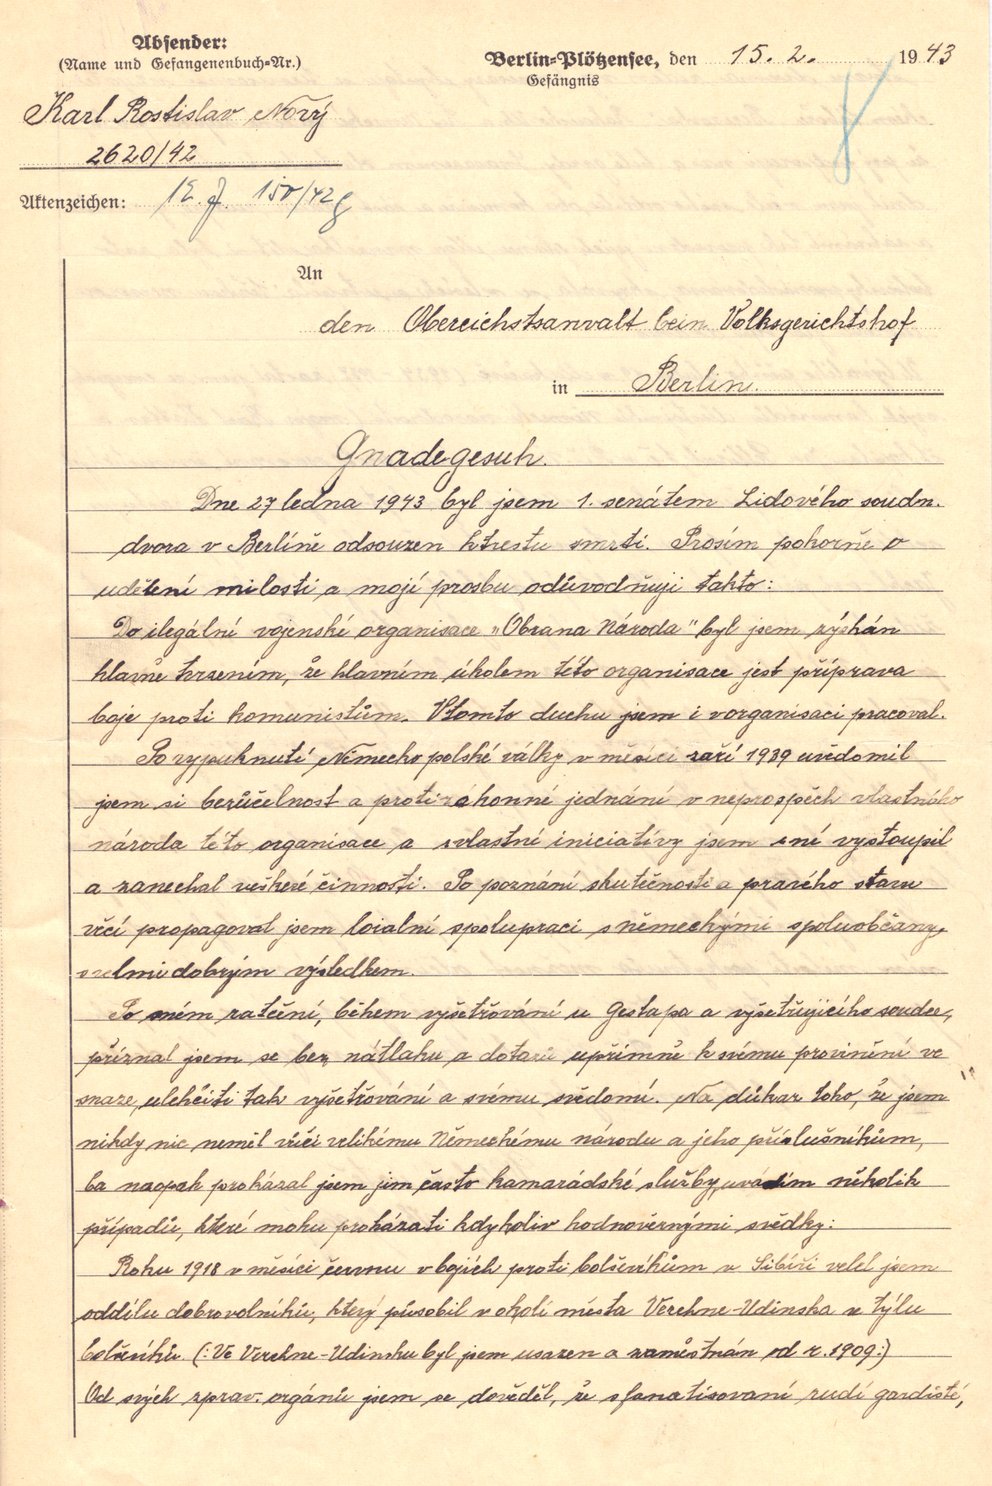 Absender:
(Name und Gefangenenbuch-Nr.)
Karl Rostislav Nový
2620/42
Aktenzeichen: 1 E. J. 150/42g
Berlin-Plötzensee, den 15. 2. 1943
Gefängnis
An
den Obereichstsanvalt bein Volksgerichtshof
in Berlin.
Gnadegesuh.
Dne 27 ledna 1943 byl jsem 1. senátem Lidového soudn.
dvora v Berlíně odsouzen k trestu smrti. Prosím pokorně o
udělení milosti a moji prosbu odůvodňuji takto:
Do ilegální vojenské organisace „Obrana Národa" byl jsem získán
hlavně tvrzením, že hlavním úkolem této organisace jest příprava
boje proti komunistům. V tomto duchu jsem i v organisaci pracoval.
Po vypuknutí Německo polské války v měsíci září 1939 uvědomil
jsem si bezúčelnost a protizákonné jednání v neprospěch vlastního
národa této organisace a z vlastní iniciativy jsem z ní vystoupil
a zanechal veškeré činnosti. Po poznání skutečnosti a pravého stavu
věcí propagoval jsem loialní spolupraci s německými spoluobčany,
s velmi dobrým výsledkem.
Po mém zatčení, během vyšetřování u Gestapa a vyšetřujícího soudce,
přiznal jsem se bez nátlaku a dotazů upřímně k svému provinění ve
snaze, ulehčiti tak vyšetřování a svému svědomí. Na důkaz toho, že jsem
nikdy nic neměl vůči velikému Německému národu a jeho příslušníkům,
ba naopak prokázal jsem jim často kamarádské služby, uvádím několik
případů, které mohu prokázati kdykoliv hodnověrnými svědky:
Roku 1918 v měsíci červnu v bojích proti bolševikům v Sibiři velel jsem
oddílu dobrovolníků, který působil v okolí města Verchne-Udinska v týlu
bolševiků (: Ve Verchne-Udinsku byl jsem usazen a zaměstnán od r. 1909:)
Od svých zprav. orgánů jsem se dověděl, že sfanatisovaní rudí gardisté,